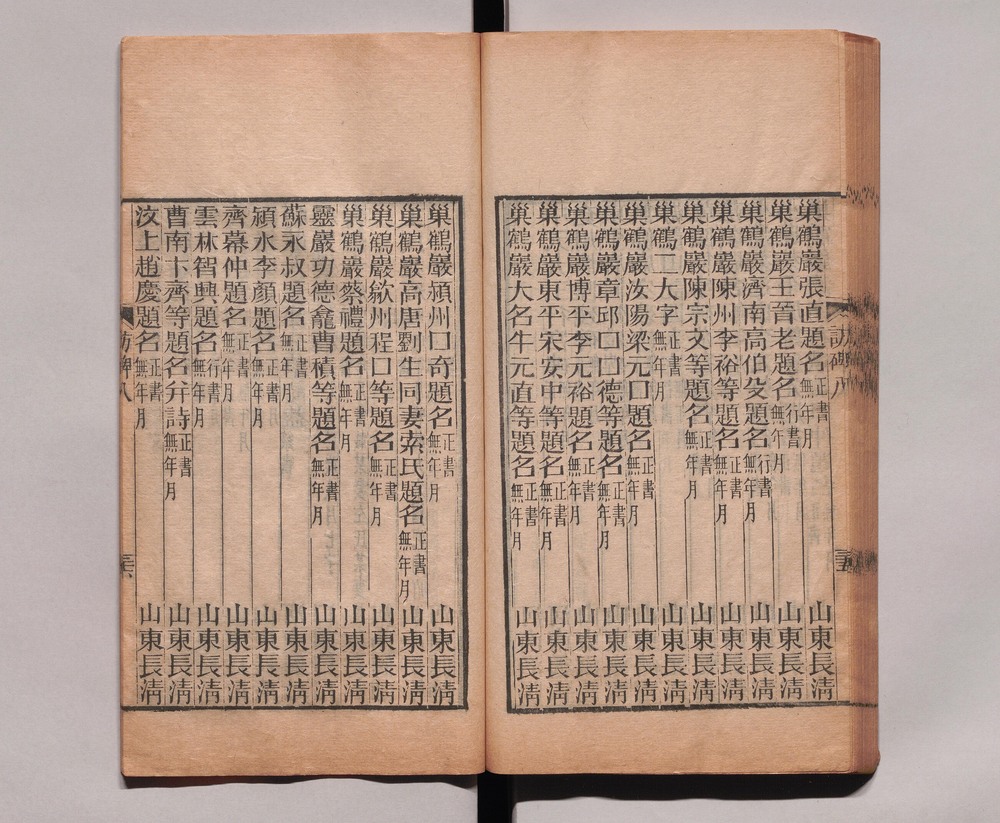 巢鶴巖張直題名正書無年月 山東長淸
巢鶴巖王晉老題名行書無年月 山東長淸
巢鶴巖濟南高伯殳題名行書無年月 山東長淸
巢鶴巖陳州李裕等題名正書無年月 山東長淸
巢鶴巖陳宗文等題名正書無年月 山東長淸
巢鶴二大字正書無年月 山東長淸
巢鶴巖汝陽梁元口題名正書無年月 山東長淸
巢鶴巖章邱口口德等題名正書無年月 山東長淸
巢鶴巖博平李元裕題名正書無年月 山東長淸
巢鶴巖東平宋安中等題名正書無年月 山東長淸
巢鶴巖大名牛元直等題名正書無年月 山東長淸
訪碑八
巢鶴巖潁州口奇題名正書無年月 山東長淸
巢鶴巖高唐劉生同妻索氏題名正書無年月 山東長淸
巢鶴巖歙州程口等題名正書無年月 山東長淸
巢鶴巖蔡禮題名正書無年月 山東長淸
靈巖功德龕曹積等題名正書無年月 山東長淸
蘇永叔題名正書無年月 山東長淸
潁水李顏題名正書無年月 山東長淸
齊幕仲題名正書無年月 山東長淸
雲林智興題名行書無年月 山東長淸
曹南卞齊等題名幷詩正書無年月 山東長淸
汶上趙慶題名正書無年月 山東長淸
訪碑八